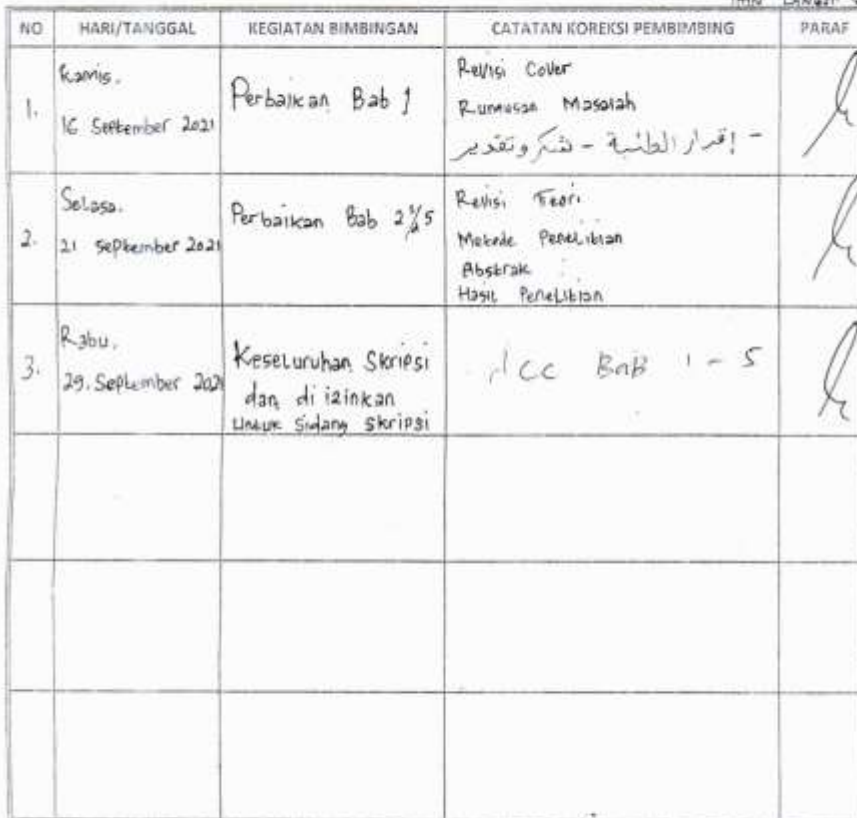 NO HARI/TANGGAL KEGIATAN BIMBINGAN CATATAN KOREKSI PEMBIMBING PARAF
1. Kamis, 16 September 2021
Perbaikan Bab 1
Revisi Cover
Rumusan Masalah
- إقرار الطالبة - شكر وتقدير
2. Selasa. 21 September 2021
Perbaikan Bab 2 5
Revisi Teori
Metode Penelitian
Abstrak
Hasil Penelitian
3. Rabu, 29. September 2021
Keseluruhan Skripsi
dan di izinkan
Untuk Sidang Skripsi
Acc BAB 1 - 5